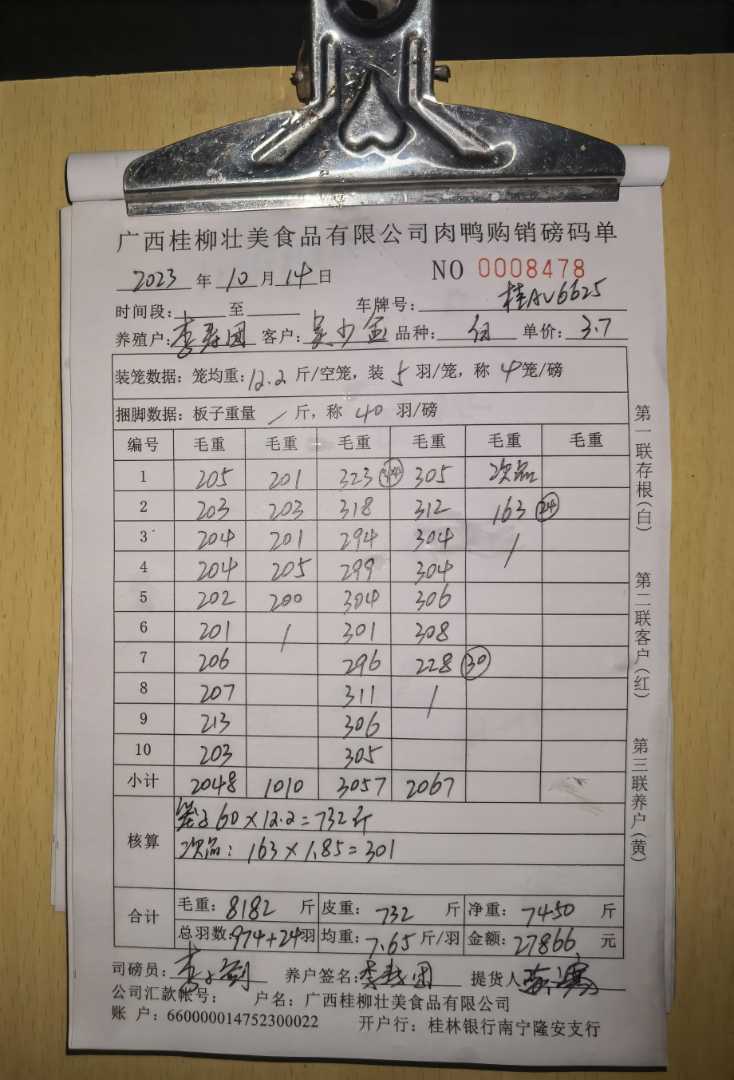 广西桂柳壮美食品有限公司肉鸭购销磅码单
2023 年 10 月 14 日 NO 0008478
时间段: 至 车牌号: 桂AV6625
养殖户: 李寿团 客户: 吴少金 品种: 单价: 3.7
装笼数据: 笼均重: 12.2 斤/空笼, 装 5 羽/笼, 称 4 笼/磅
捆脚数据: 板子重量 / 斤, 称 40 羽/磅
编号 毛重 毛重 毛重 毛重 毛重 毛重
1 205 201 323 305 次品
2 203 203 318 312 163 24
3 204 201 294 304 /
4 204 205 299 304
5 202 200 304 306
6 201 / 301 308
7 206 296 228 30
8 207 311 /
9 213 306
10 203 305
小计 2048 1010 3057 2067
核算
笼子60×12.2=732斤
次品: 163×1.85=301
合计
毛重: 8182 斤 皮重: 732 斤 净重: 7450 斤
总羽数: 974+24羽 均重: 7.65 斤/羽 金额: 27866 元
司磅员: 养户签名: 李寿团 提货人
公司汇款帐号: 户名: 广西桂柳壮美食品有限公司
账 户: 660000014752300022 开户行: 桂林银行南宁隆安支行
第一联存根(白)
第二联客户(红)
第三联养户(黄)